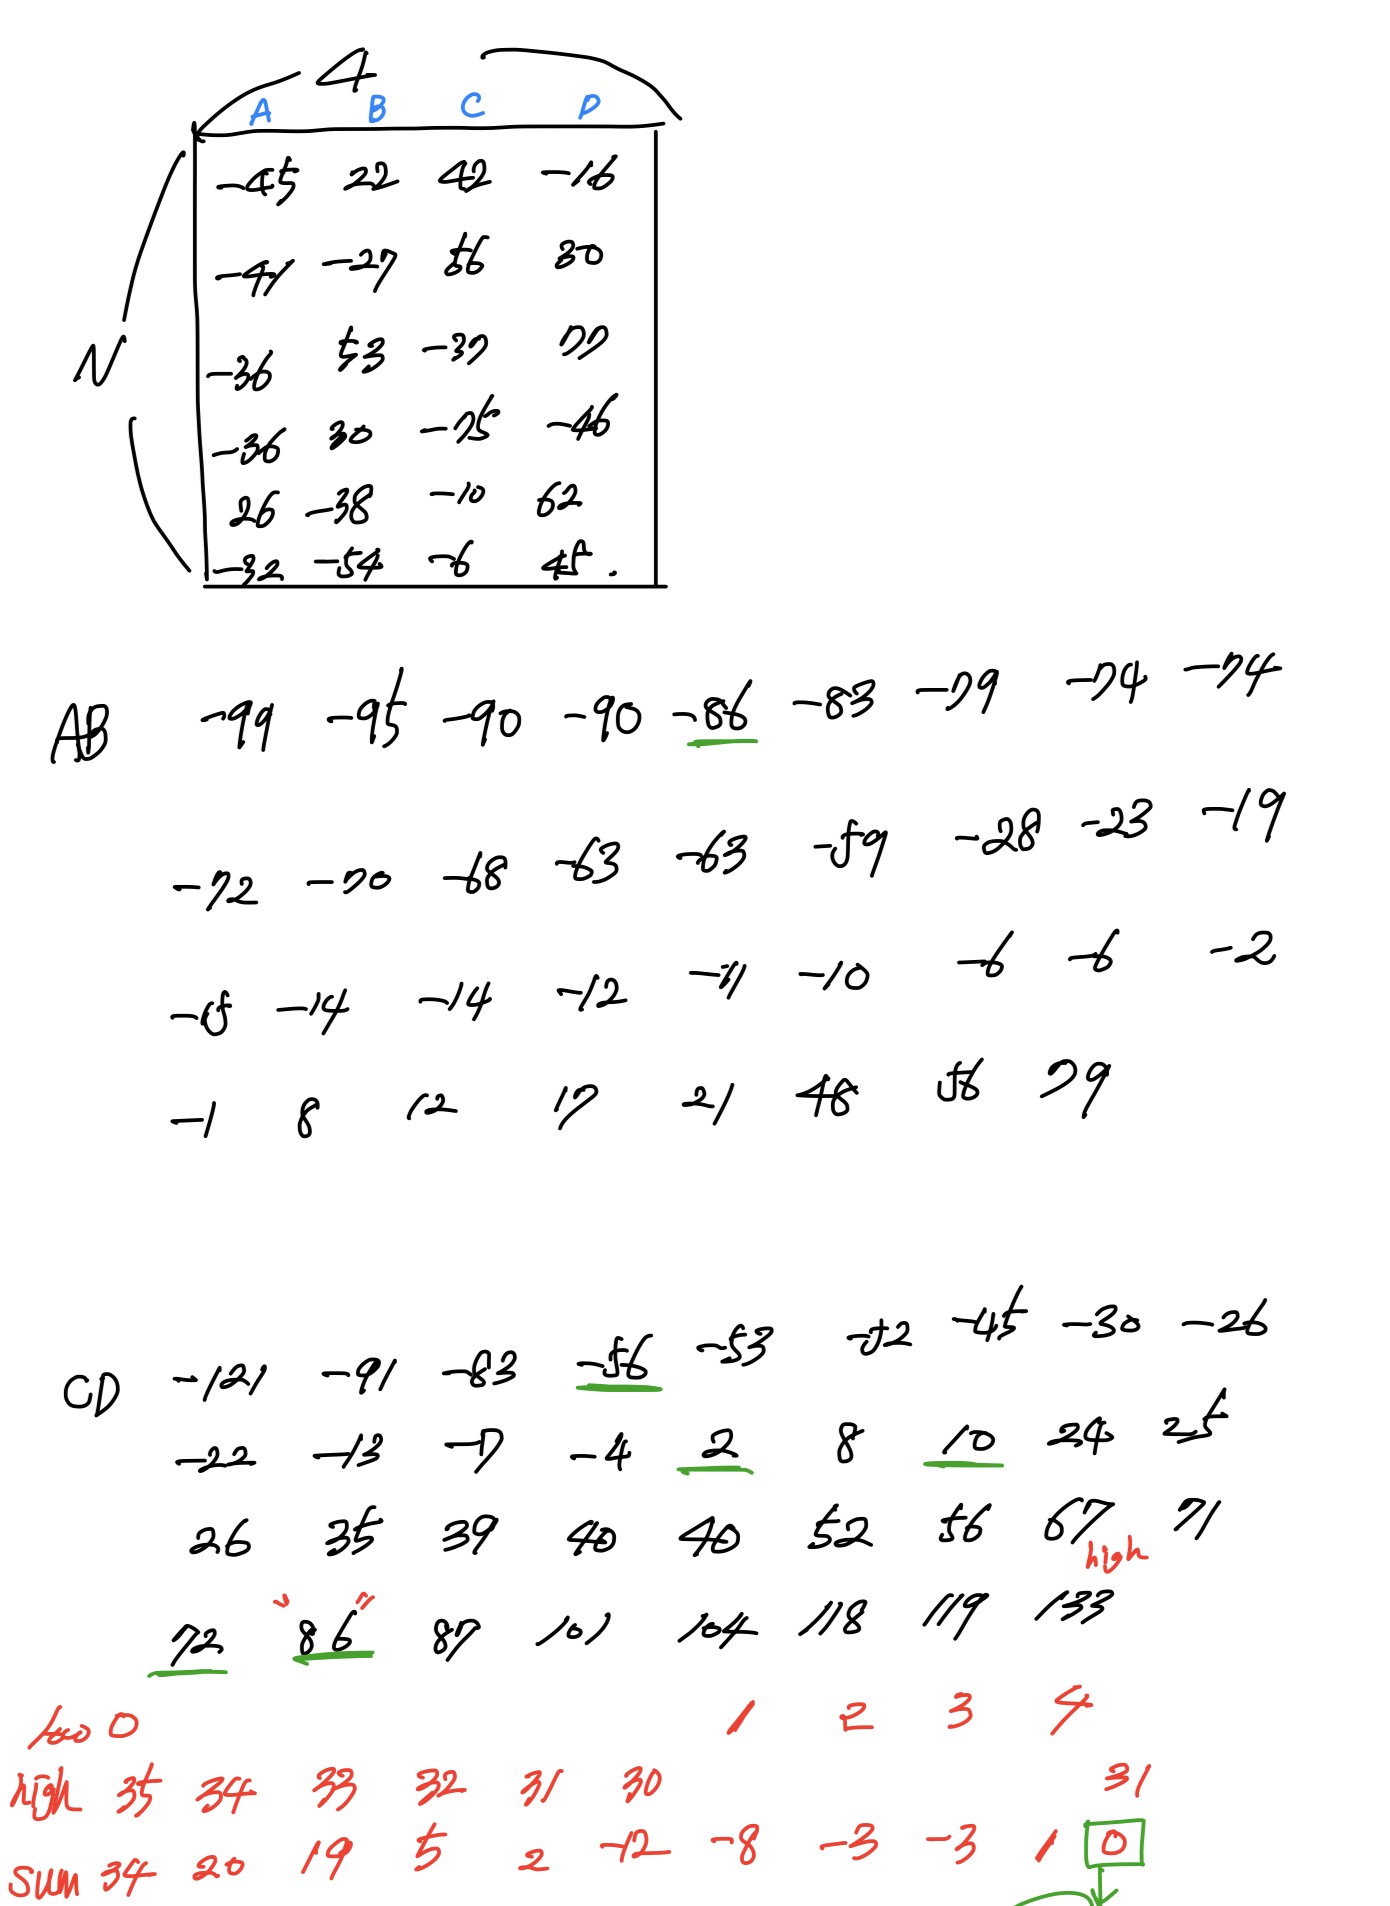 4
A B C D
-45 22 42 -16
-41 -27 56 30
N
-36 53 -37 77
-36 30 -75 -46
26 -38 -10 62
-32 -54 -6 45.
AB -99 -95 -90 -90 -86 -83 -79 -74 -74
-72 -70 -68 -63 -63 -59 -28 -23 -19
-15 -14 -14 -12 -11 -10 -6 -6 -2
-1 8 12 17 21 48 56 79
CD -121 -91 -83 -56 -53 -52 -45 -30 -26
-22 -13 -7 -4 2 8 10 24 25
26 35 39 40 40 52 56 67 71
high
72 "86" 87 101 104 118 119 133
low 0 1 2 3 4
high 35 34 33 32 31 30 31
sum 34 20 19 5 2 -12 -8 -3 -3 1 0